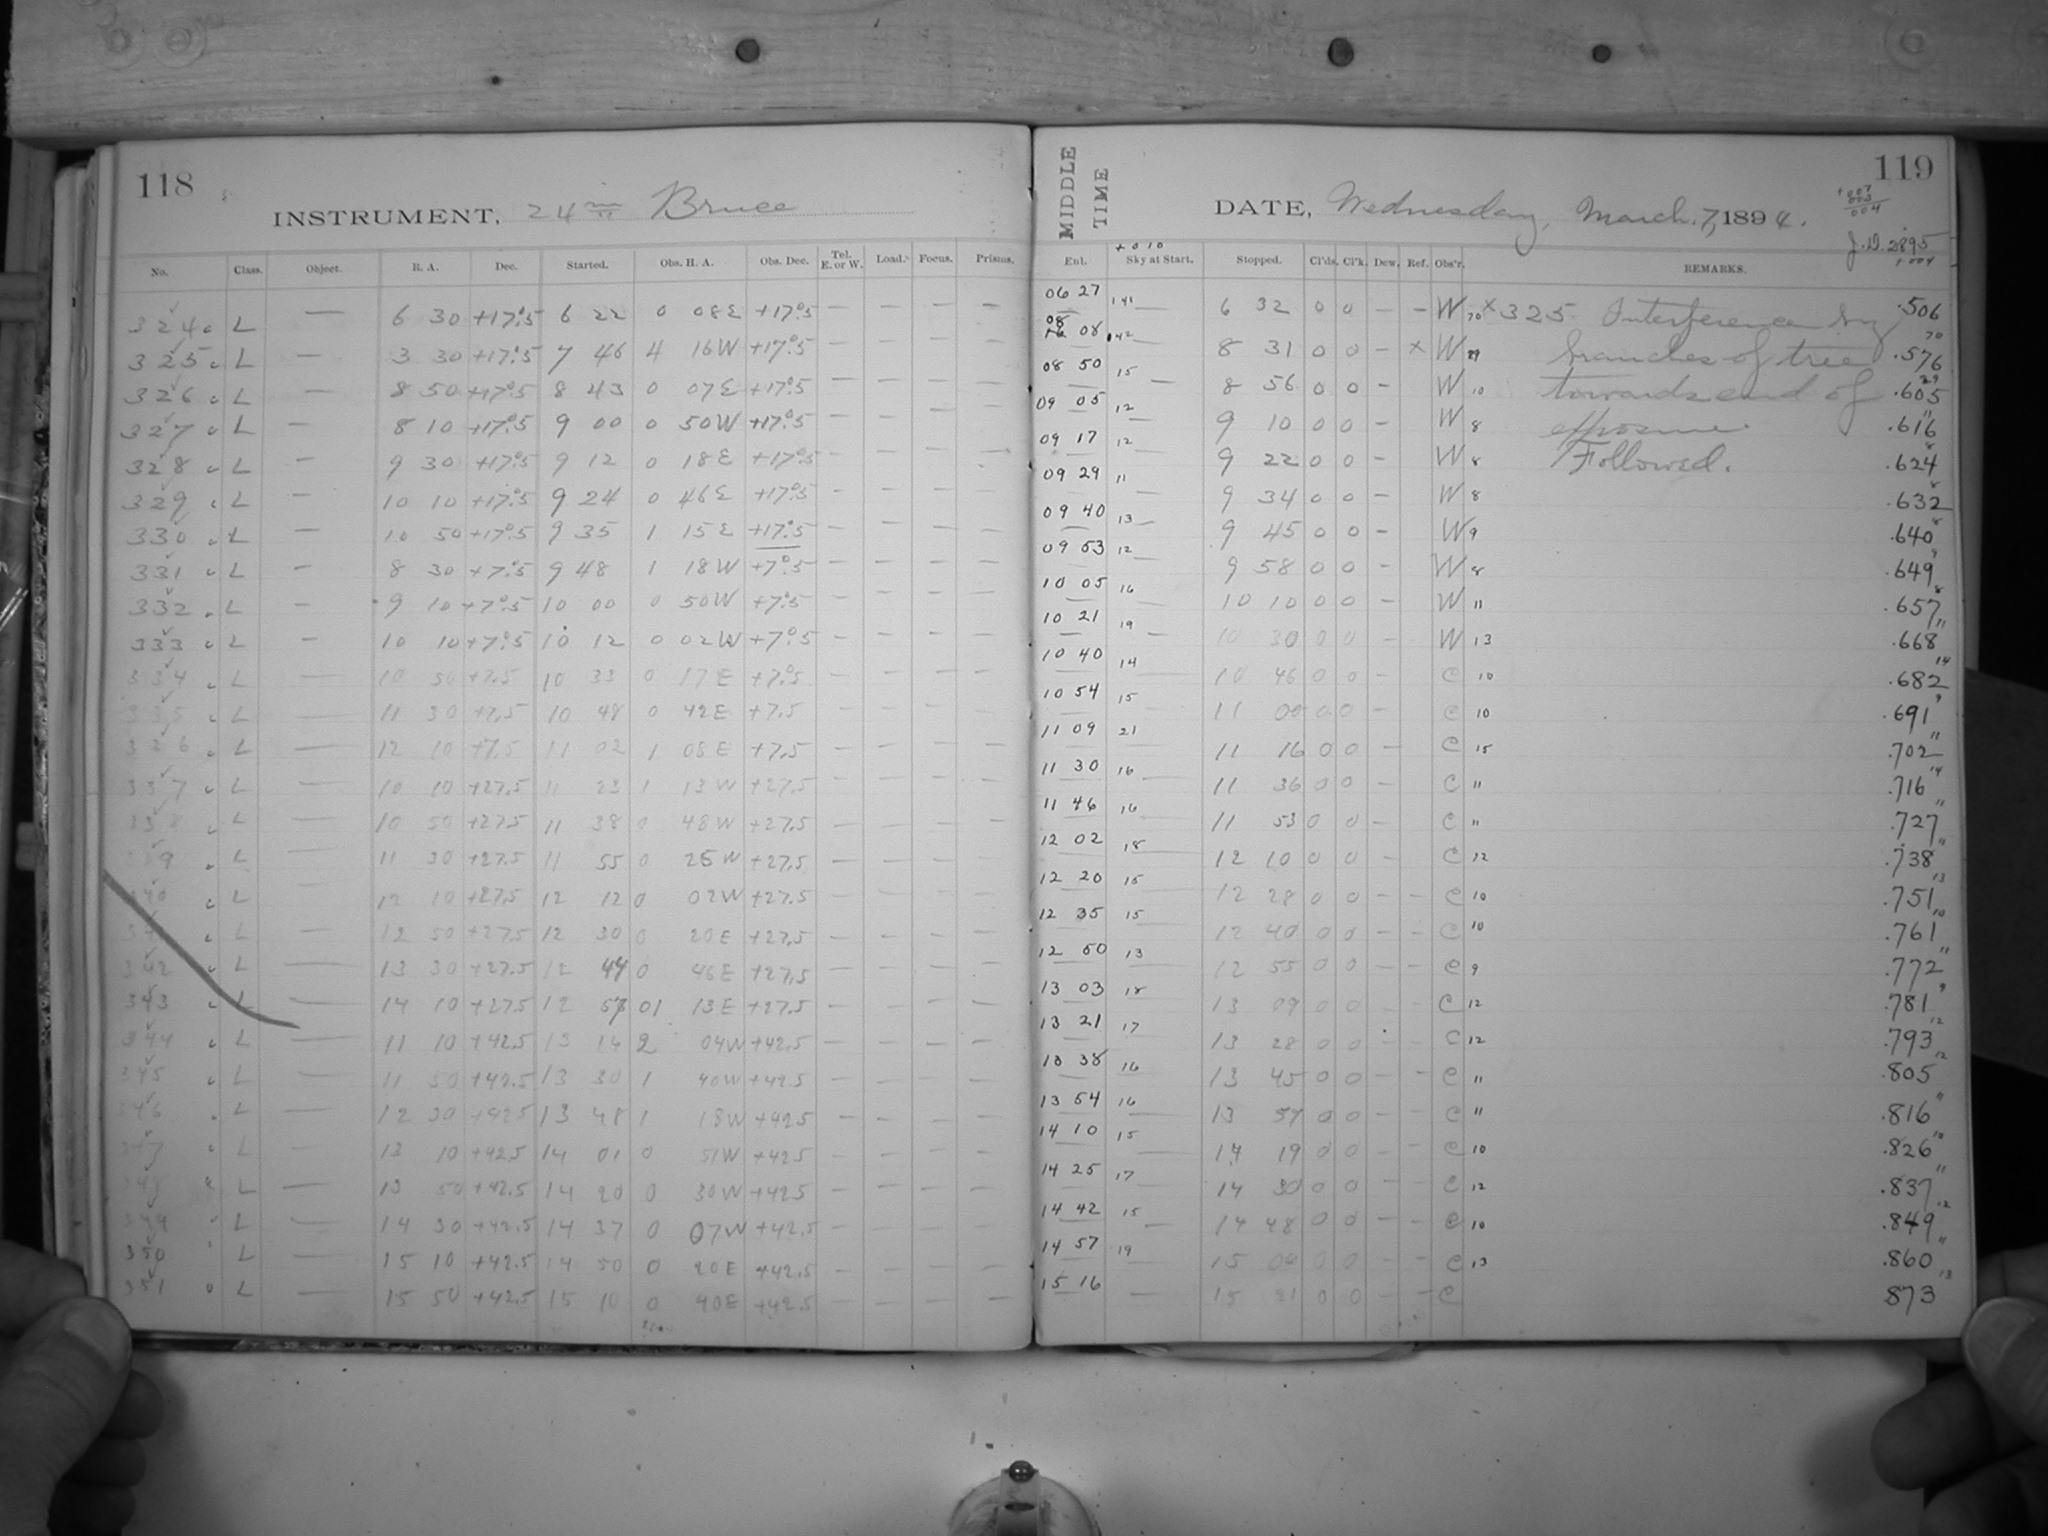 118
INSTRUMENT, 24 in Bruce
No. Class. Object. R. A. Dec. Started. Obs. H. A. Obs. Dec. Tel. E. or W. Load. Focus. Prisms.
324 L — 6 30 +17°.5 6 22 0 08 E +17°.5 — — — —
325 L — 3 30 +17°.5 7 46 4 16 W +17°.5 — — — —
326 L — 8 50 +17°.5 8 43 0 07 E +17°.5 — — — —
327 L — 8 10 +17°.5 9 00 0 50 W +17°.5 — — — —
328 L — 9 30 +17°.5 9 12 0 18 E +17°.5 — — — —
329 L — 10 10 +17°.5 9 24 0 46 E +17°.5 — — — —
330 L — 10 50 +17°.5 9 35 1 15 E +17°.5 — — — —
331 L — 8 30 +7°.5 9 48 1 18 W +7°.5 — — — —
332 L — 9 10 +7°.5 10 00 0 50 W +7°.5 — — — —
333 L — 10 10 +7°.5 10 12 0 02 W +7°.5 — — — —
334 L — 10 50 +7.5 10 33 0 17 E +7°.5 — — — —
335 L — 11 30 +7.5 10 48 0 42 E +7.5 — — — —
336 L — 12 10 +7.5 11 02 1 08 E +7.5 — — — —
337 L — 10 10 +27.5 11 23 1 13 W +27.5 — — — —
338 L — 10 50 +27.5 11 38 0 48 W +27.5 — — — —
339 L — 11 30 +27.5 11 55 0 25 W +27.5 — — — —
340 L — 12 10 +27.5 12 12 0 02 W +27.5 — — — —
341 L — 12 50 +27.5 12 30 0 20 E +27.5 — — — —
342 L — 13 30 +27.5 12 44 0 46 E +27.5 — — — —
343 L — 14 10 +27.5 12 57 01 13 E +27.5 — — — —
344 L — 11 10 +42.5 13 14 2 04 W +42.5 — — — —
345 L — 11 50 +42.5 13 30 1 40 W +42.5 — — — —
346 L — 12 30 +42.5 13 48 1 18 W +42.5 — — — —
347 L — 13 10 +42.5 14 01 0 51 W +42.5 — — — —
348 L — 13 50 +42.5 14 20 0 30 W +42.5 — — — —
349 L — 14 30 +42.5 14 37 0 07 W +42.5 — — — —
350 L — 15 10 +42.5 14 50 0 20 E +42.5 — — — —
351 L — 15 50 +42.5 15 10 0 40 E +42.5 — — — —
119
MIDDLE TIME
DATE, Wednesday, March. 7, 1894.
J.D. 2895
+.004
+010
Ent. Sky at Start. Stopped. Cl'ds. Cl'k. Dew. Ref. Obs'r. REMARKS.
06 27 141 — 6 32 0 0 — — W 70 × 325 Interference by .506
08 08 42 — 8 31 0 0 — × W 29 branches of tree .576
08 50 15 — 8 56 0 0 — W 10 towards end of .605
09 05 12 9 10 0 0 — W 8 exposure. .616
09 17 12 9 22 0 0 — W 8 Followed. .624
09 29 11 9 34 0 0 — W 8 .632
09 40 13 — 9 45 0 0 — W 9 .640
09 53 12 — 9 58 0 0 — W 8 .649
10 05 16 10 10 0 0 — W 11 .657
10 21 19 — 10 30 0 0 — W 13 .668
10 40 14 10 46 0 0 — C 10 .682
10 54 15 11 00 0 0 — C 10 .691
11 09 21 11 16 0 0 — C 15 .702
11 30 16 11 36 0 0 C 11 .716
11 46 16 11 53 0 0 — C 11 .727
12 02 18 12 10 0 0 — C 12 .738
12 20 15 12 28 0 0 — — C 10 .751
12 35 15 12 40 0 0 — — C 10 .761
12 50 13 12 55 0 0 — — C 9 .772
13 03 18 13 09 0 0 — — C 12 .781
13 21 17 13 28 0 0 — C 12 .793
13 38 16 13 45 0 0 — — C 11 .805
13 54 16 13 57 0 0 — — C 11 .816
14 10 15 14 19 0 0 — — C 10 .826
14 25 17 14 30 0 0 — — C 12 .837
14 42 15 14 48 0 0 — — C 10 .849
14 57 19 15 04 0 0 — — C 13 .860
15 16 — 15 21 0 0 — — C .873